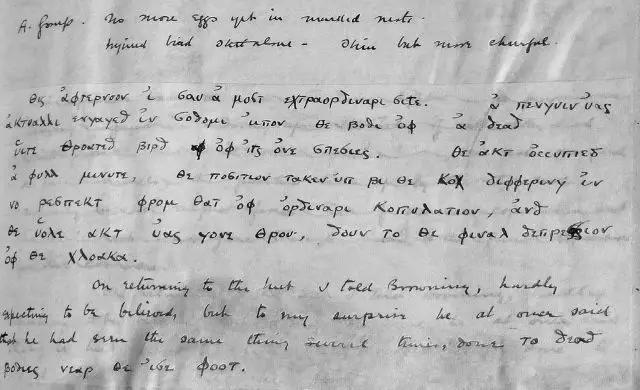 A. Group. No more eggs yet in marked nests.
Injured bird still alone - thin but more cheerful.
θις ἀφτερνοον ἰ σαυ ἀ μοστ εχτραορδιναρι σιτε. ἀ πενγυιν ὑας
ἀκτυαλλι ενγαγεδ ἰν σοδομι ὐπον θε βοδι ὀφ ἀ δεαδ
ὑιτε θροατεδ βιρδ ὀφ ἰτς ὀνε σπεσιες. θε ἀκτ ὀccυπιεδ
ἀ φυλλ μινυτε, θε ποσιτιον τακεν ὐπ βι θε κοκ διφφερινγ ἰν
νο ρεσπεκτ φρομ θατ ὀφ ὀρδιναρι κοπυλατιον, ἀνδ
θε ὑολε ακτ ὑας γονε θρου, δουν το θε φιναλ δεπρεσσιον
ὀφ θε χλοακα.
On returning to the hut I told Browning, hardly
expecting to be believed, but to my surprise he at once said
that he had seen the same thing several times, done το δεαδ
βοδιες νεαρ θε ἰσε φοοτ.